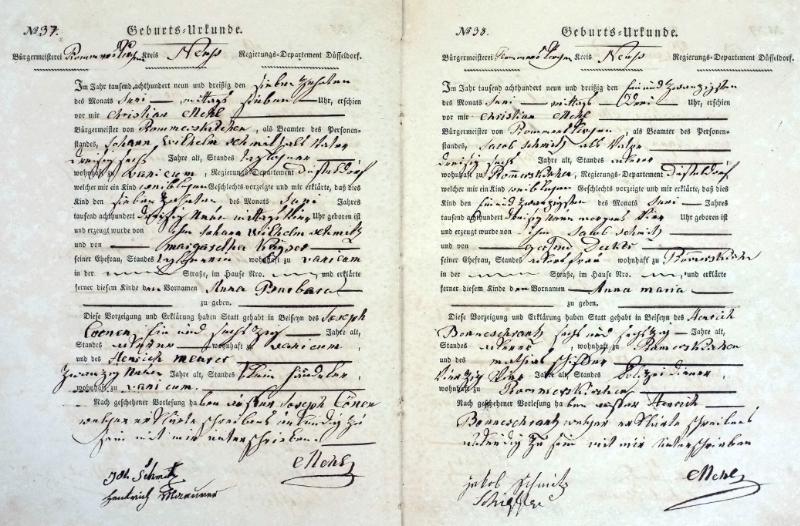 No 37. Geburts-Urkunde.
Bürgermeisterei Rommerskirchen Kreis Neuss Regierungs-Departement Düsseldorf.
Im Jahr tausend achthundert neun und dreißig den sieben zehnten
des Monats Juni mittags sieben Uhr, erschien
vor mir Christian Mehl
Bürgermeister von Rommerskirchen, als Beamter des Personen-
standes, Johann Wilhelm Schmitz als Vater
dreißig sechs Jahre alt, Standes Taglöhner
wohnhaft zu Vanicum, Regierungs-Departement Düsseldorf
welcher mir ein Kind weiblichen Geschlechts vorzeigte und mir erklärte, daß dies
Kind den sieben zehnten des Monats Juni Jahres
tausend achthundert dreißig neun mittags Uhr geboren ist
und erzeugt wurde von ihm Johann Wilhelm Schmitz
und von Margaretha
seiner Ehefrau, Standes Taglöhnerin wohnhaft zu Vanicum
in der Straße, im Hause Nro. und erklärte
ferner diesem Kinde den Vornamen Anna Barbara
zu geben.
Diese Vorzeigung und Erklärung haben Statt gehabt in Beiseyn des Joseph
Cönen ein und sechszig Jahre alt,
Standes Ackerer wohnhaft zu Vanicum,
und des Henrich Meurer
zwanzig Jahre alt, Standes Klein händeler
wohnhaft zu Vanicum.
Nach geschehener Vorlesung haben Joseph Cönen
welcher erklärte schreibens unkundig zu
sein mit mir unterschrieben.
Joh. Schmitz CMehl
Heinrich Maurer
No 38. Geburts-Urkunde.
Bürgermeisterei Rommerskirchen Kreis Neuss Regierungs-Departement Düsseldorf.
Im Jahr tausend achthundert neun und dreißig den ein und zwanzigsten
des Monats Juni mittags drei Uhr, erschien
vor mir Christian Mehl
Bürgermeister von Rommerskirchen, als Beamter des Personen-
standes, Jacob Schmitz als Vater
dreißig sechs Jahre alt, Standes Ackerer
wohnhaft zu Rommerskirchen, Regierungs-Departement Düsseldorf
welcher mir ein Kind weiblichen Geschlechts vorzeigte und mir erklärte, daß dies
Kind den ein und zwanzigsten des Monats Juni Jahres
tausend achthundert dreißig neun morgens vier Uhr geboren ist
und erzeugt wurde von ihm Jacob Schmitz
und von
seiner Ehefrau, Standes Ackerfrau wohnhaft zu Rommerskirchen
in der Straße, im Hause Nro. und erklärte
ferner diesem Kinde den Vornamen Anna Maria
zu geben.
Diese Vorzeigung und Erklärung haben Statt gehabt in Beiseyn des Henrich
sechs und sechszig Jahre alt,
Standes Ackerer wohnhaft zu Rommerskirchen
und des Mathias
vierzig vier Jahre alt, Standes Polizei diener
wohnhaft zu Rommerskirchen
Nach geschehener Vorlesung haben außer Henrich
welcher erklärte schreibens
unkundig zu sein mit mir unterschrieben
Jakob Schmitz CMehl